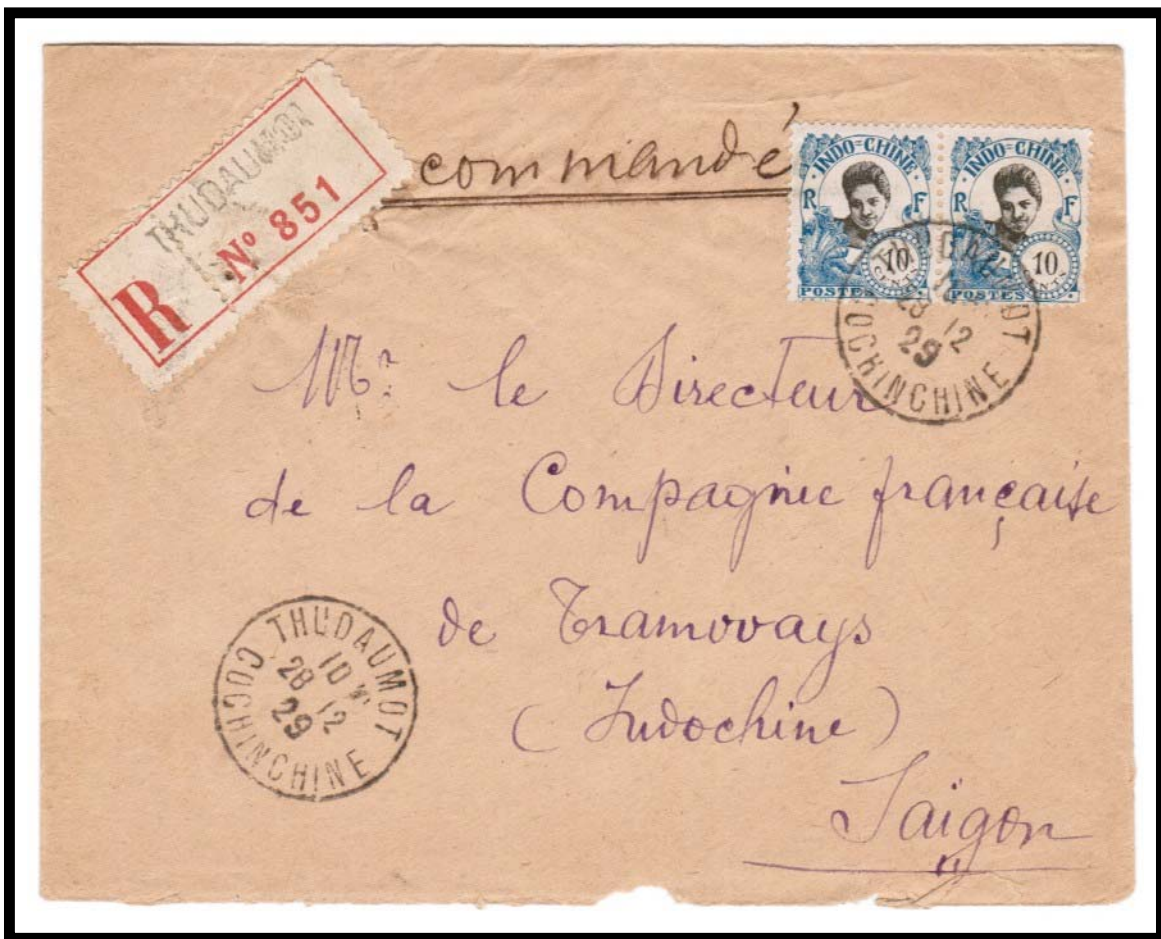 THUDAUMOT
R Nº 851
commandé
INDO=CHINE INDO=CHINE
R F R F
10 CENTS 10 CENTS
POSTES POSTES
THUDAUMOT
28 12
29
COCHINCHINE
Mr. le Directeur
de la Compagnie française
de Tramways
(Indochine)
Saïgon
THUDAUMOT
10 M
28 12
29
COCHINCHINE